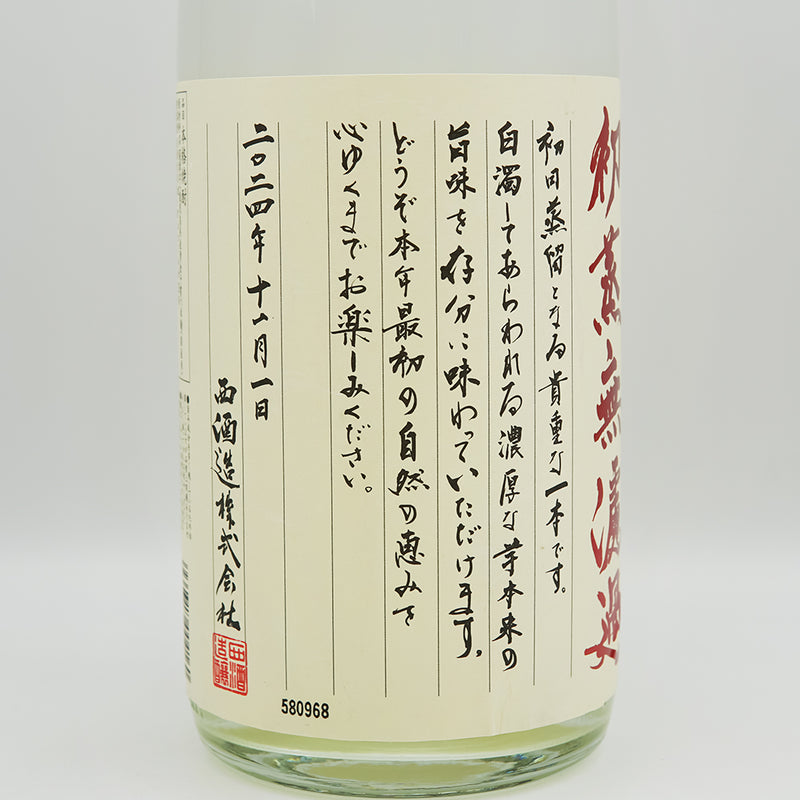 初蒸無濾過
初日蒸留となる貴重な一本です。
白濁してあらわれる濃厚な芋本来の
旨味を存分に味わっていただけます。
どうぞ本年最初の自然の恵みを
心ゆくまでお楽しみください。
二〇二四年 十一月一日
西酒造株式会社
580968
本格焼酎